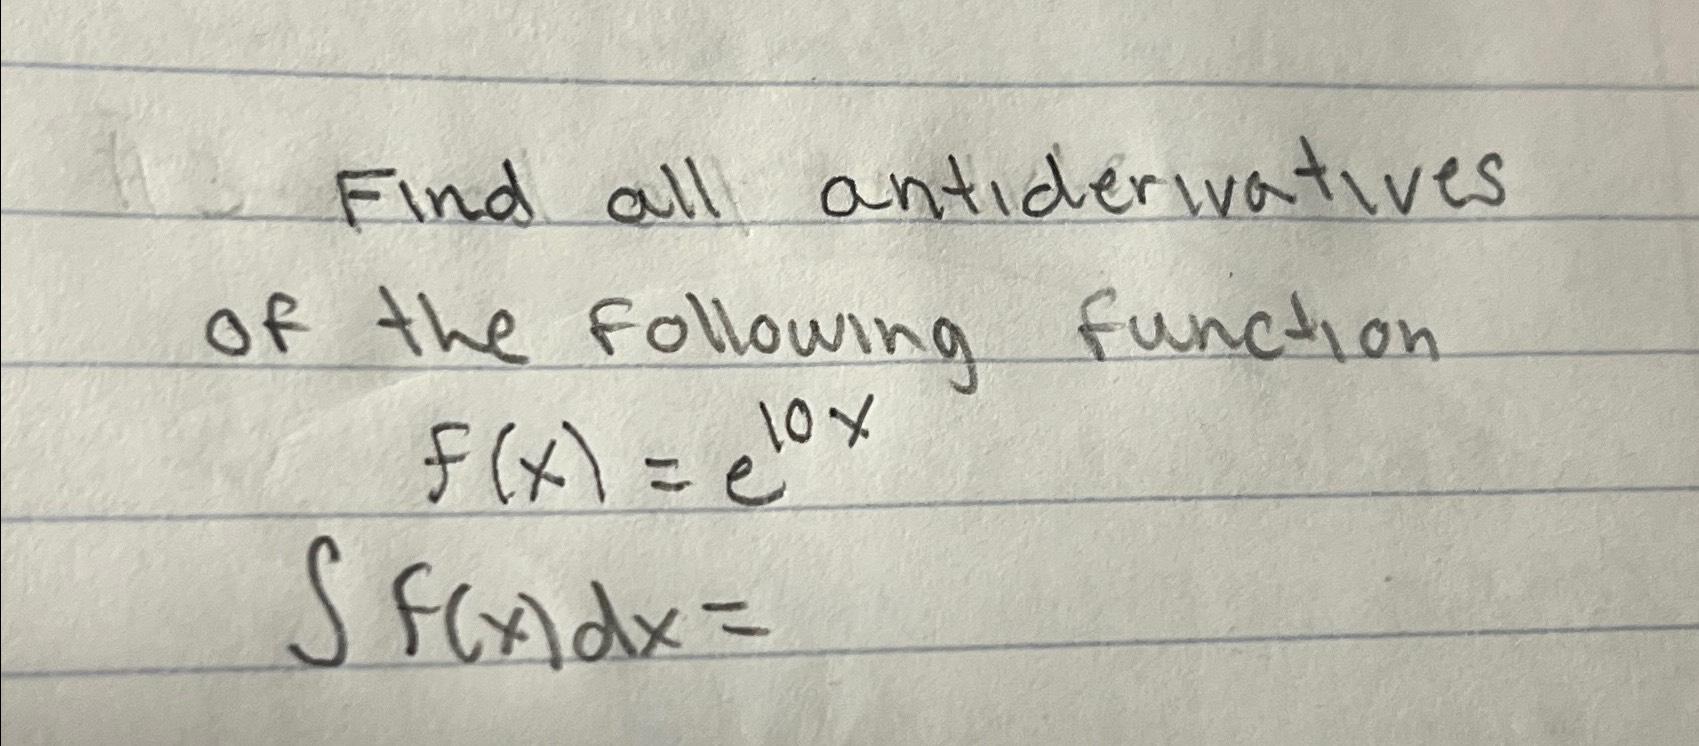 Find all antiderivatives
of the following function
f(x) = e^{10x}
∫ f(x)dx =